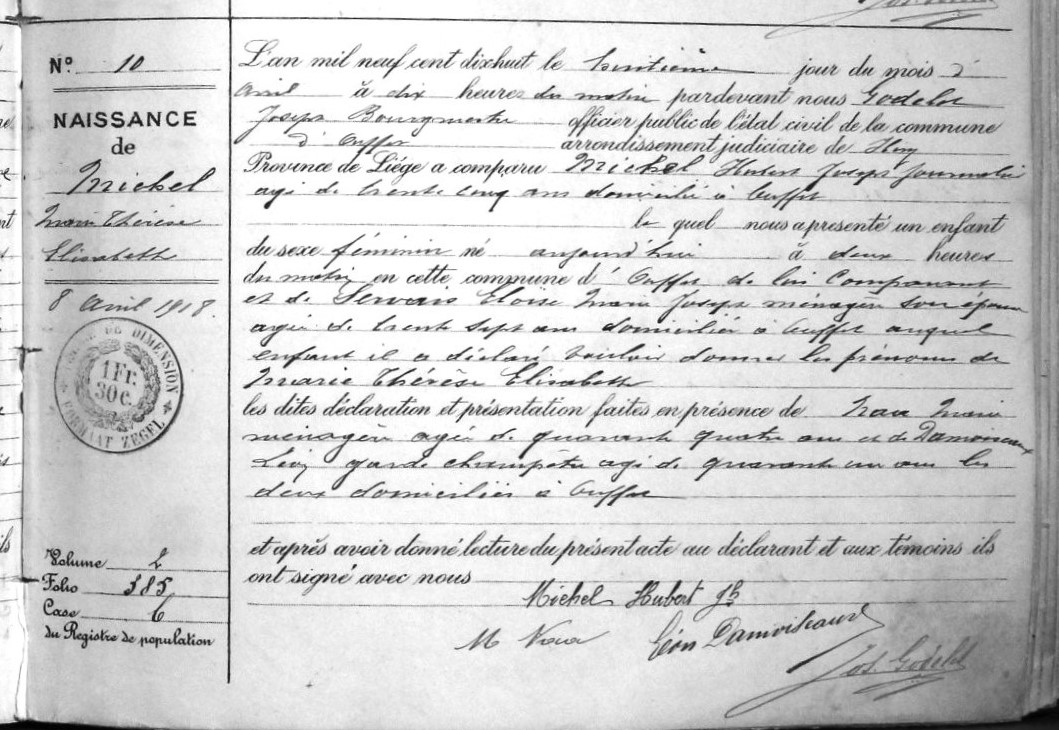 Nº 10
NAISSANCE
de
Michel
Marie Thérèse
Elisabeth
8 Avril 1918.
DE DIMENSION
1 Fr.
30 c.
FORMAAT ZEGEL
Volume 2
Folio 385
Case 6
du Registre de population
L'an mil neuf cent dixhuit le huitième jour du mois d'
Avril à dix heures du matin pardevant nous Godelet
Joseph Bourgmestre officier public de l'état civil de la commune
d'Ouffet arrondissement judiciaire de Huy
Province de Liége a comparu Michel Hubert Joseph journalier
agé de trente cinq ans domicilié à Ouffet
le quel nous a présenté un enfant
du sexe féminin né aujourd'hui à deux heures
du matin en cette commune d'Ouffet de lui Comparant
et de Servais Eloise Marie Joseph ménagère son épouse
agée de trente sept ans domiciliée à Ouffet auquel
enfant il a déclaré vouloir donner les prénoms de
Marie Thérèse Elisabeth
les dites déclaration et présentation faites en présence de Naa Marie
ménagère agée de quarante quatre ans et de Damoiseaux
Léon garde champêtre agé de quarante un ans les
deux domiciliés à Ouffet
et après avoir donné lecture du présent acte au déclarant et aux témoins ils
ont signé avec nous
Michel Hubert Jh
M Naa Léon Damoiseaux
Jos. Godelet